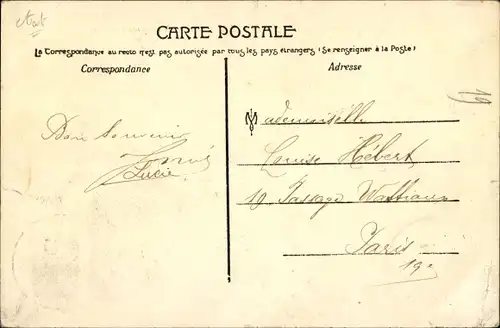 CARTE POSTALE
La Correspondance au recto n'est pas autorisée par tous les pays étrangers (Se renseigner à la Poste)
Correspondance
Adresse
19
Mademoiselle
Bon Souvenir
Louise Hébert
Lucie
10 Passage Wattiaux
Paris
19e